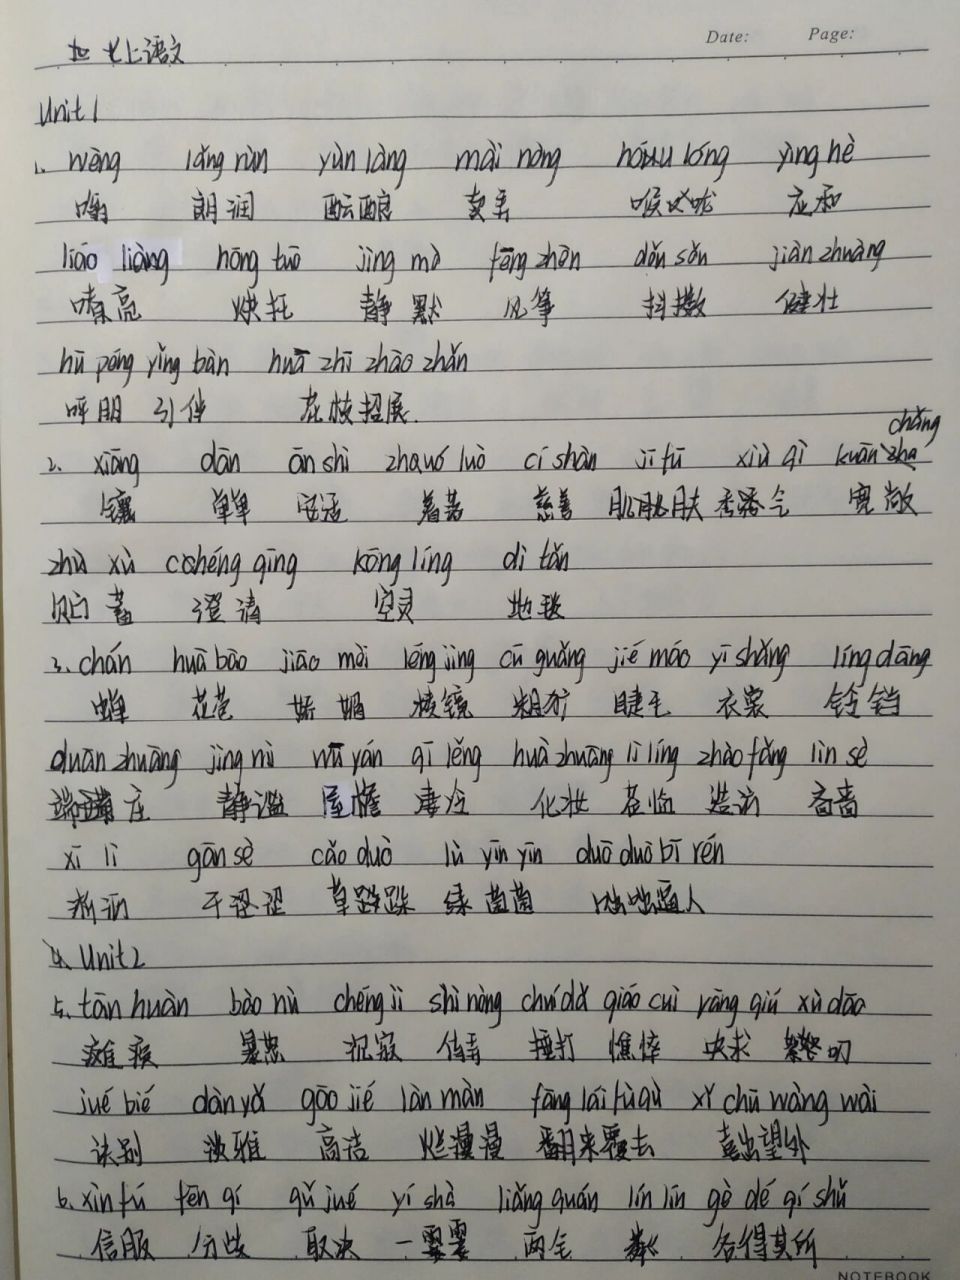 Date: Page:
七上语文
Unit 1
1. wēng lǎng rùn yùn làng mài nòng hóu lóng yìng hè
嗡 朗润 酝酿 卖弄 喉咙 应和
liáo liàng hōng tuō jìng mò fēng zhēn dǒu sǒu jiàn zhuàng
嘹亮 烘托 静默 风筝 抖擞 健壮
hū péng yǐng bàn huā zhī zhāo zhǎn
呼朋引伴 花枝招展
chǎng
2. xiāng dān ān shì zhuó luò cí shàn jī fū xiù qì kuān
镶 单 安适 着落 慈善 肌肤 秀气 宽敞
zhù xù chéng qīng kōng líng dì tǎn
贮蓄 澄清 空灵 地毯
3. chán huā bāo jiāo mèi léng jìng cū guǎng jié máo yī shǎng líng dāng
蝉 花苞 娇媚 棱镜 粗犷 睫毛 衣裳 铃铛
duān zhuāng jìng mì wū yán qī lěng huà zhuāng lì lín zhào fǎng lìn sè
端庄 静谧 屋檐 凄冷 化妆 莅临 造访 吝啬
xī lì gān sè cǎo duò lǜ yīn yīn duō duō bī rén
淅沥 干涩 草垛 绿茵茵 咄咄逼人
Unit 2
5. tān huàn bào nù chéng jì shì nòng chuí dǎ qiáo cuì yāng qiú xù dāo
瘫痪 暴怒 沉寂 侍弄 捶打 憔悴 央求 絮叨
jué bié dàn yǎ gāo jié làn màn fān lái fù qù xǐ chū wàng wài
诀别 淡雅 高洁 烂漫 翻来覆去 喜出望外
6. xìn fú fēn qí qǔ jué yí shà liǎng quán lín lín gè dé qí suǒ
信服 分歧 取决 一霎 两全 粼粼 各得其所
NOTEBOOK